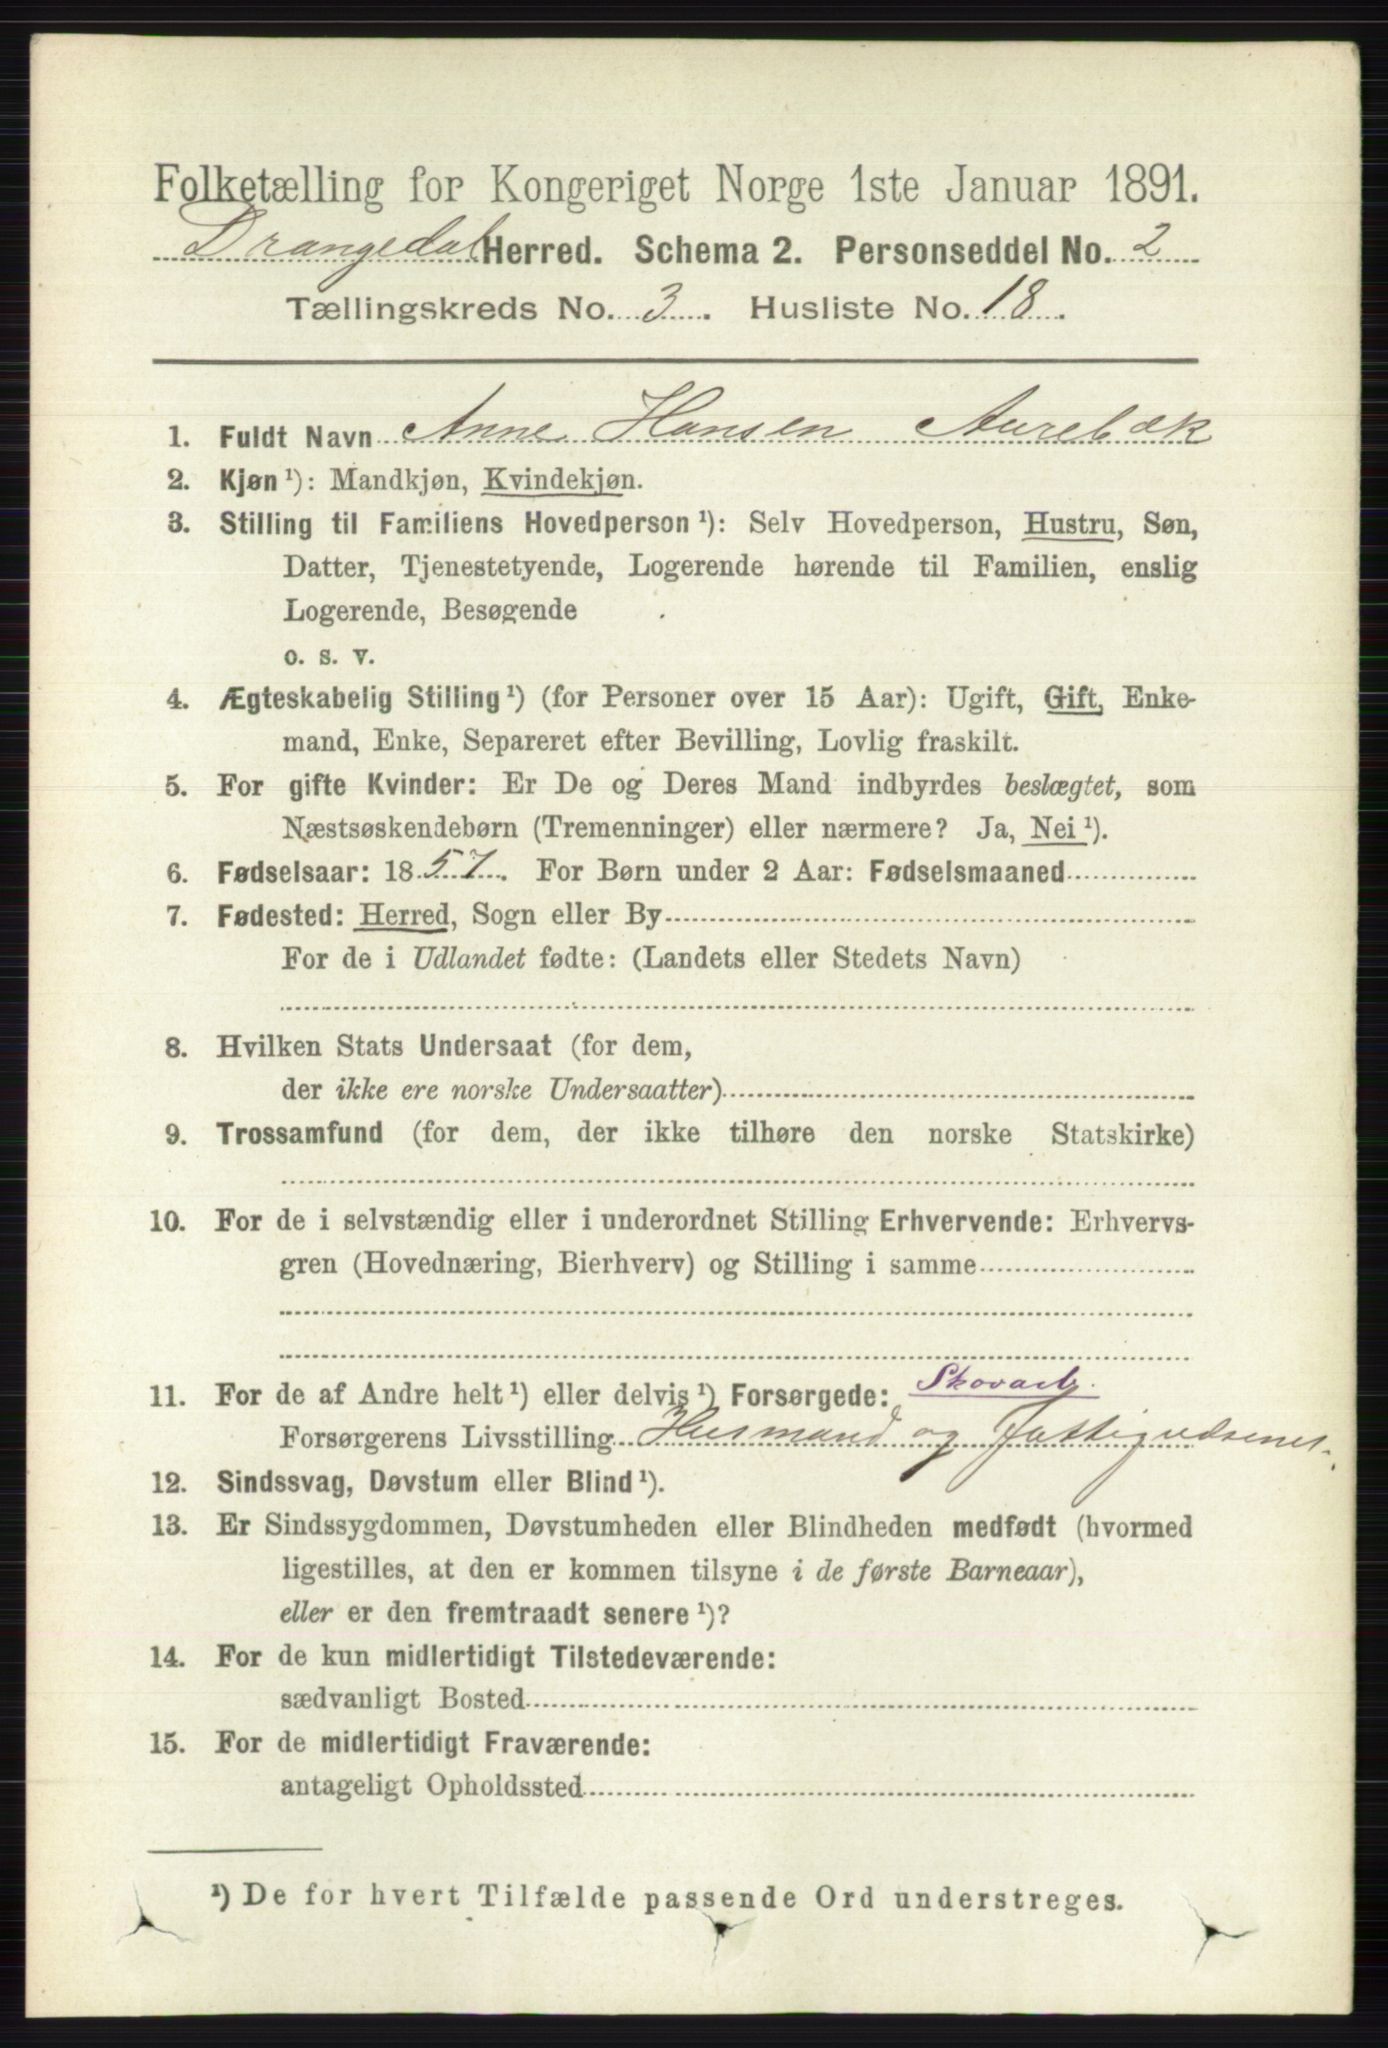 Folketælling for Kongeriget Norge 1ste Januar 1891.
Drangedal Herred. Schema 2. Personseddel No. 2
Tællingskreds No. 3. Husliste No. 18.
1. Fuldt Navn Anne Hansen Aurebæk
2. Kjøn ¹): Mandkjøn, Kvindekjøn.
3. Stilling til Familiens Hovedperson ¹): Selv Hovedperson, Hustru, Søn,
Datter, Tjenestetyende, Logerende hørende til Familien, enslig
Logerende, Besøgende
o. s. v.
4. Ægteskabelig Stilling ¹) (for Personer over 15 Aar): Ugift, Gift, Enke-
mand, Enke, Separeret efter Bevilling, Lovlig fraskilt.
5. For gifte Kvinder: Er De og Deres Mand indbyrdes beslægtet, som
Næstsøskendebørn (Tremenninger) eller nærmere? Ja, Nei ¹).
6. Fødselsaar: 1857. For Børn under 2 Aar: Fødselsmaaned
7. Fødested: Herred, Sogn eller By
For de i Udlandet fødte: (Landets eller Stedets Navn)
8. Hvilken Stats Undersaat (for dem,
der ikke ere norske Undersaatter)
9. Trossamfund (for dem, der ikke tilhøre den norske Statskirke)
10. For de i selvstændig eller i underordnet Stilling Erhvervende: Erhvervs-
gren (Hovednæring, Bierhverv) og Stilling i samme
Skovarb.
11. For de af Andre helt ¹) eller delvis ¹) Forsørgede:
Forsørgerens Livsstilling Husmand og
12. Sindssvag, Døvstum eller Blind ¹).
13. Er Sindssygdommen, Døvstumheden eller Blindheden medfødt (hvormed
ligestilles, at den er kommen tilsyne i de første Barneaar),
eller er den fremtraadt senere ¹)?
14. For de kun midlertidigt Tilstedeværende:
sædvanligt Bosted
15. For de midlertidigt Fraværende:
antageligt Opholdssted
¹) De for hvert Tilfælde passende Ord understreges.